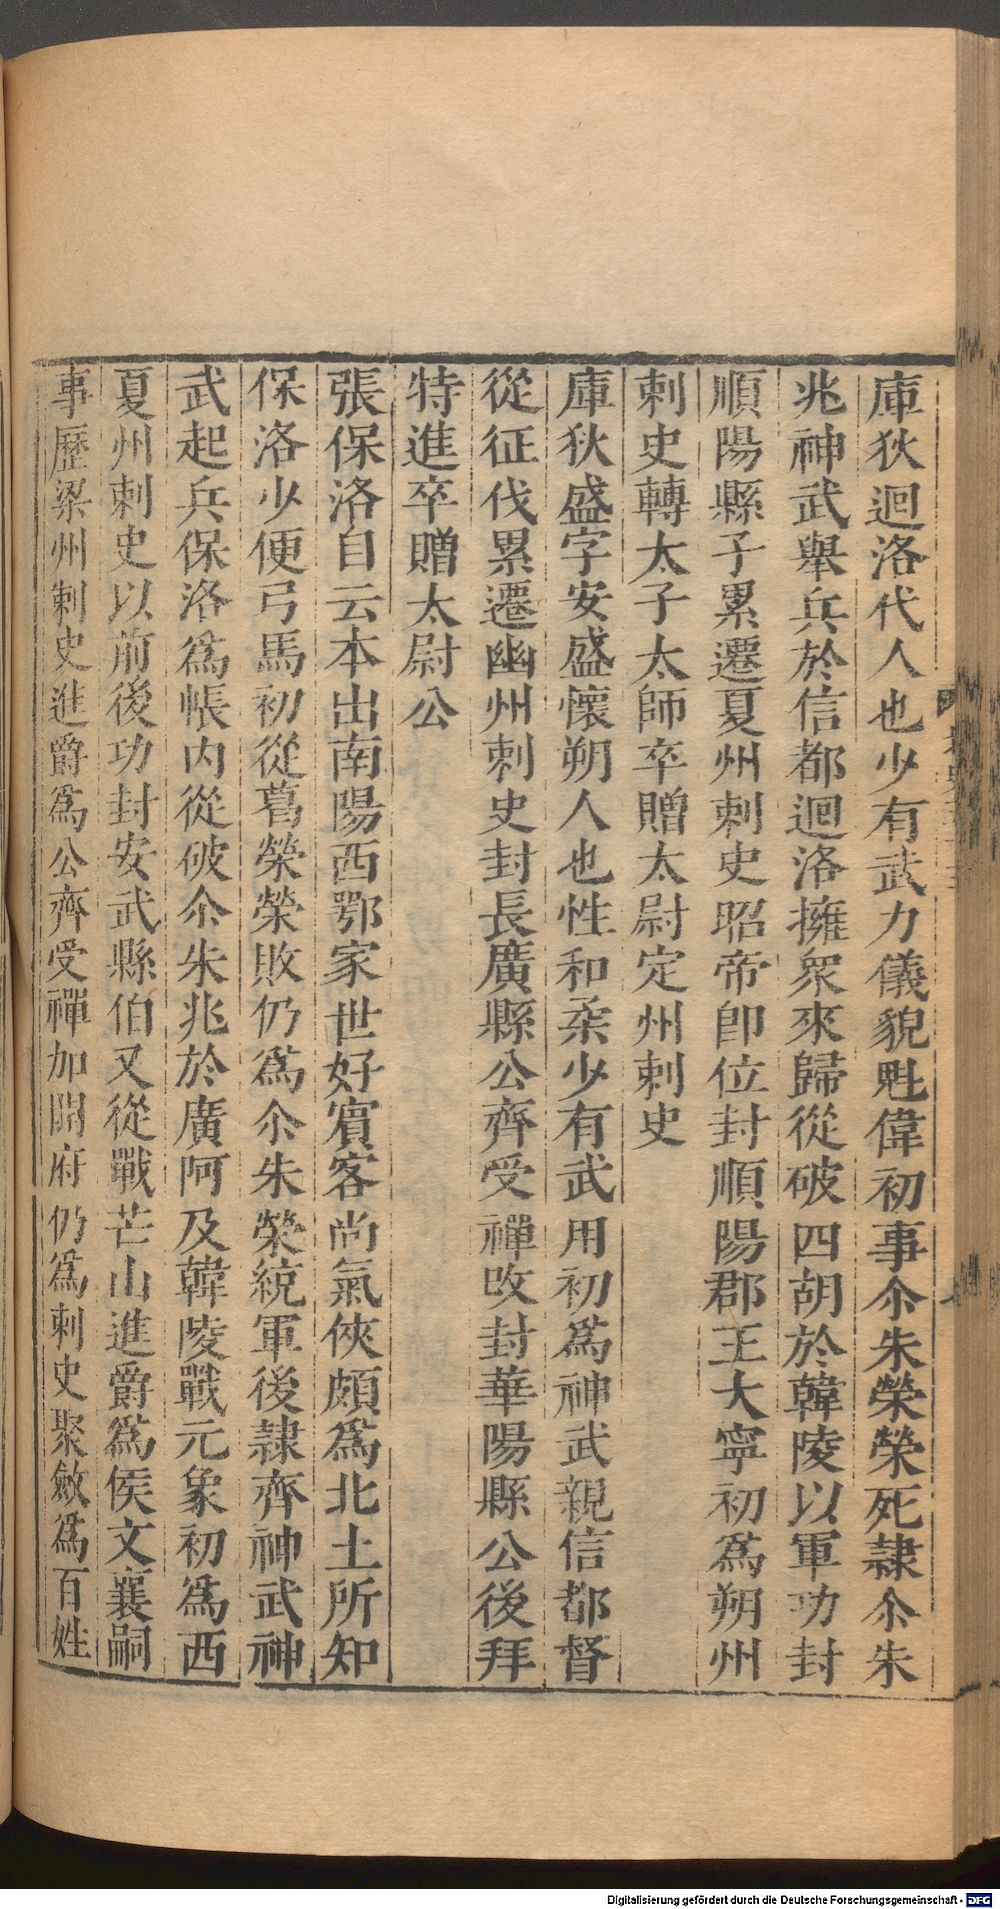 庫狄迴洛代人也少有武力儀貌魁偉初事尒朱榮榮死隷尒朱
兆神武舉兵於信都迴洛擁衆來歸從破四胡於韓陵以軍功封
順陽縣子累遷夏州刺史昭帝卽位封順陽郡王大寧初爲朔州
刺史轉太子太師卒贈太尉定州刺史
庫狄盛字安盛懷朔人也性和柔少有武用初爲神武親信都督
從征伐累遷幽州刺史封長廣縣公齊受禪攺封華陽縣公後拜
特進卒贈太尉公
張保洛自云本出南陽西鄂家世好賓客尚氣俠頗爲北土所知
保洛少便弓馬初從葛榮榮敗仍爲尒朱榮統軍後隷齊神武神
武起兵保洛爲帳內從破尒朱兆於廣阿及韓陵戰元象初爲西
夏州刺史以前後功封安武縣伯又從戰芒山進爵爲侯文襄嗣
事歷梁州刺史進爵爲公齊受禪加開府仍爲刺史聚斂爲百姓
Digitalisierung gefördert durch die Deutsche Forschungsgemeinschaft - DFG